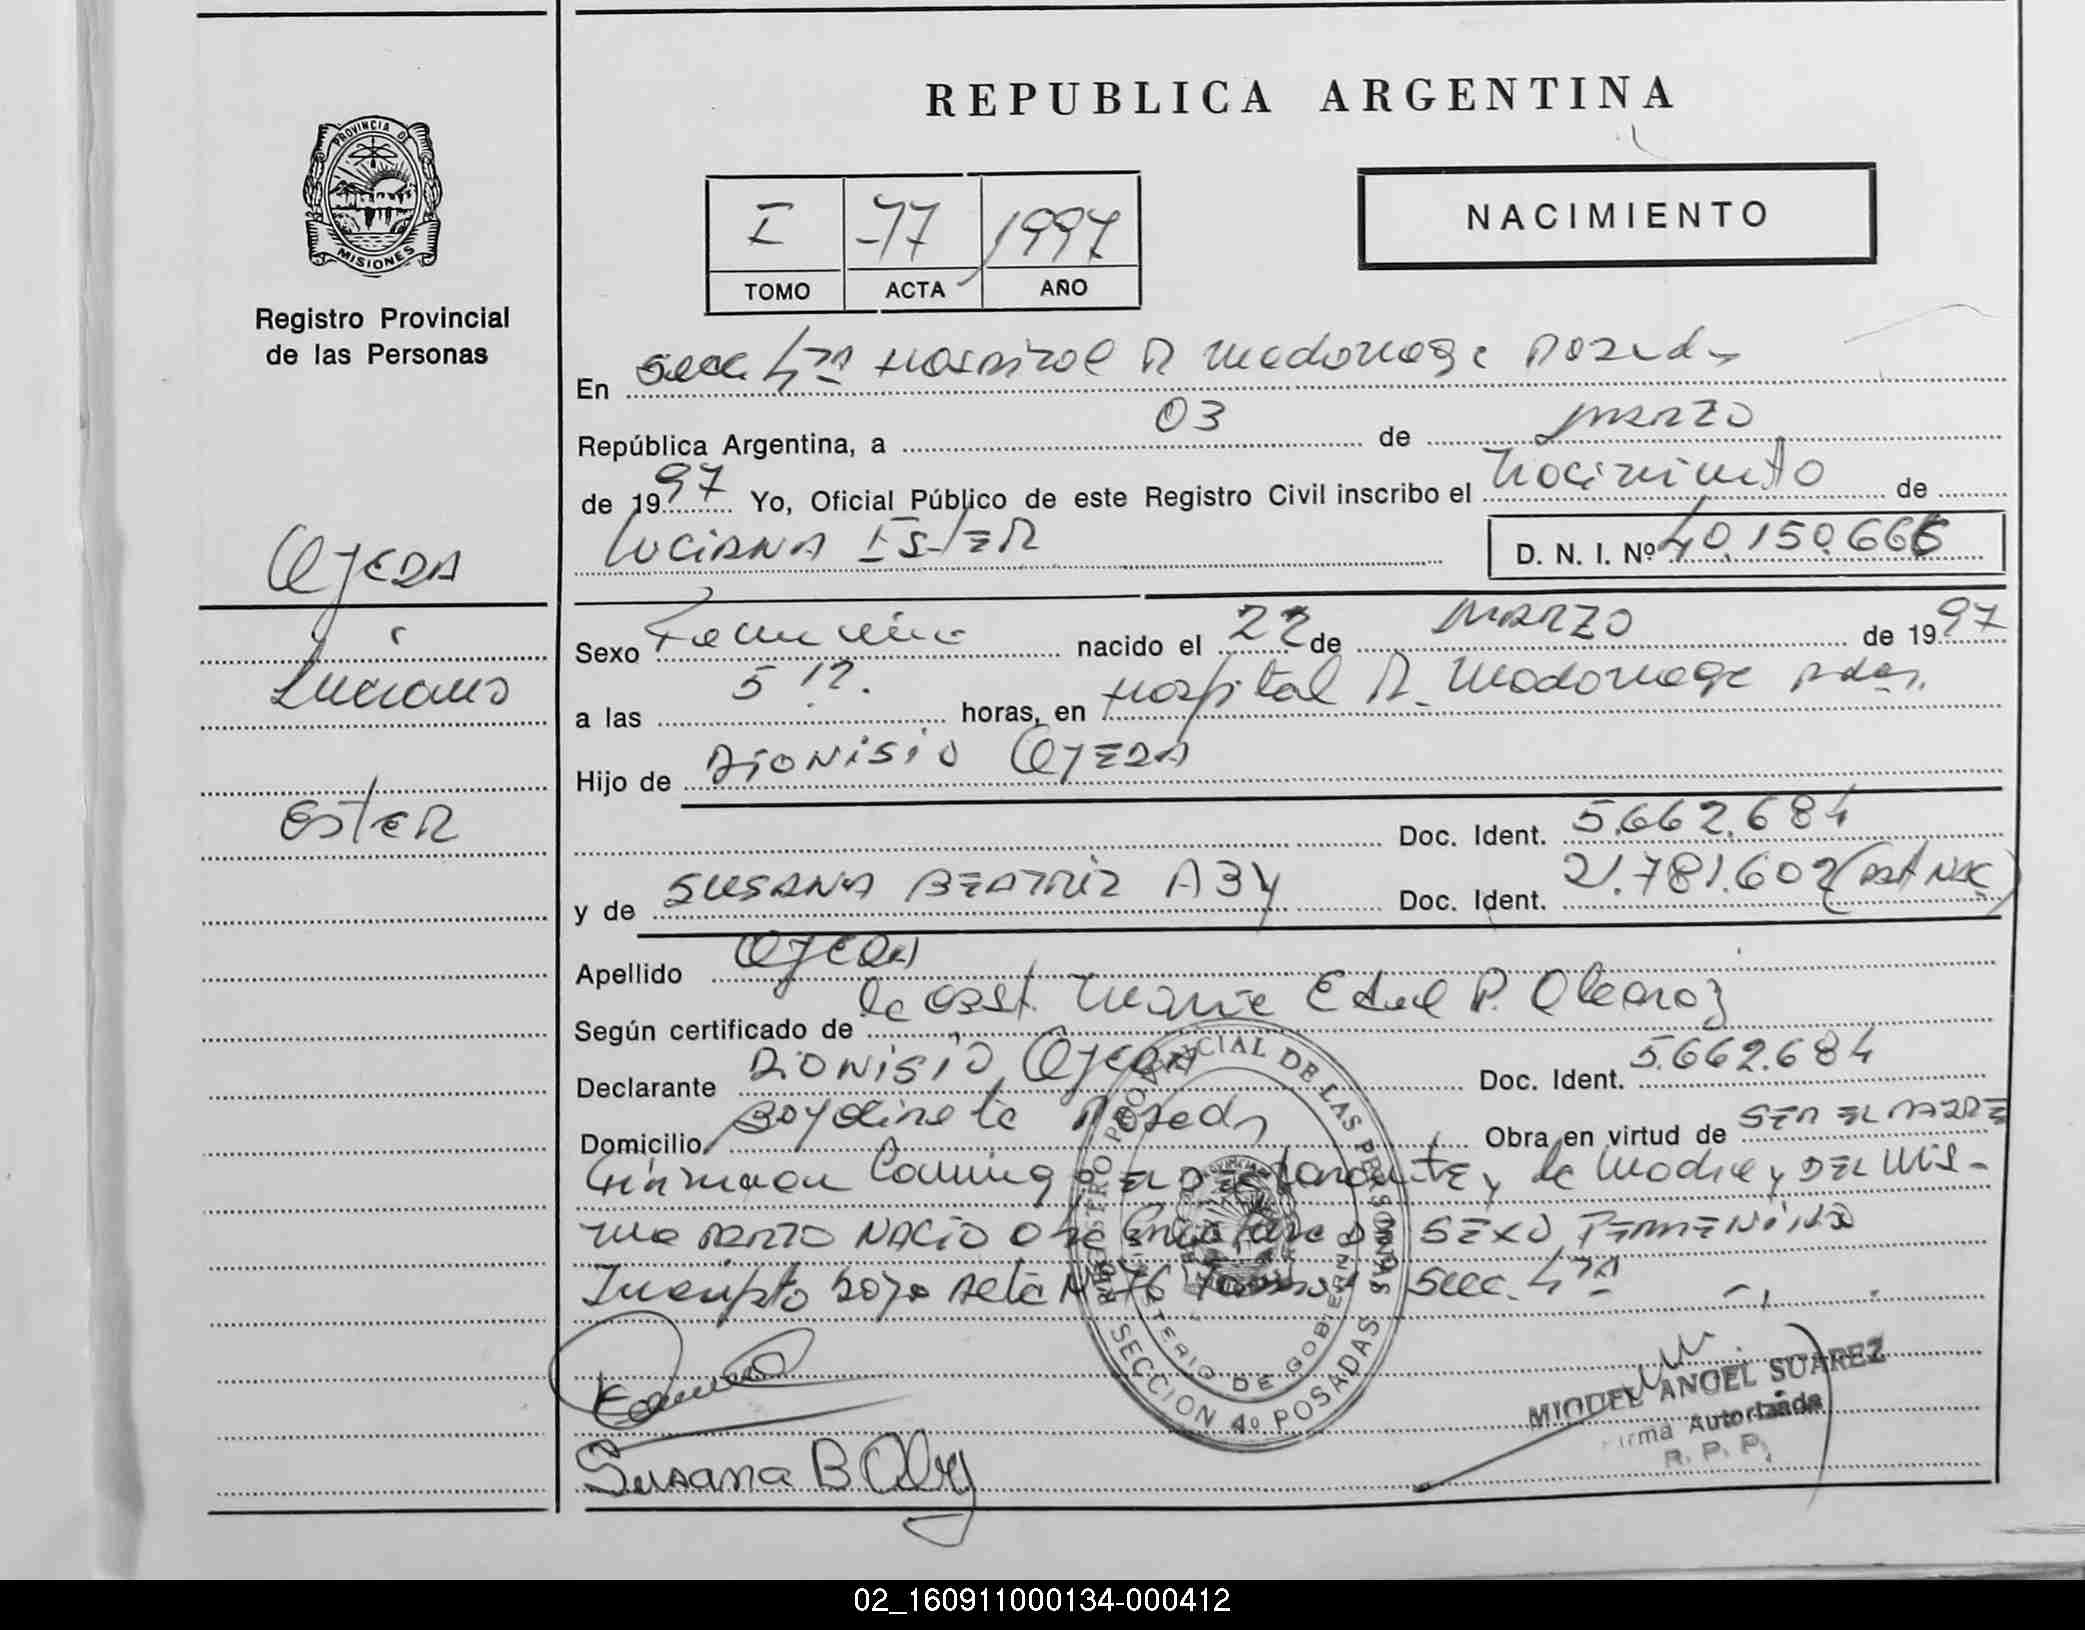 REPUBLICA ARGENTINA
PROVINCIA DE
MISIONES
Registro Provincial
de las Personas
I -77 1997
TOMO ACTA AÑO
NACIMIENTO
En Secc 4ta Hospital R Madariaga Posadas
República Argentina, a 03 de marzo
de 1997 Yo, Oficial Público de este Registro Civil inscribo el nacimiento de
LUCIANA ESTER
D. N. I. Nº 40.150.666
OJEDA
Luciana
ESTER
Sexo Femenino nacido el 22 de MARZO de 1997
a las 5 12. horas, en Hospital R. Madariaga Pdas.
Hijo de DIONISIO OJEDA
Doc. Ident. 5.662.684
y de SUSANA BEATRIZ ABY Doc. Ident. 21.781.602
Apellido OJEDA
Según certificado de la Obst. Maria P.
Declarante DIONISIO OJEDA Doc. Ident. 5.662.684
Domicilio Posadas Obra en virtud de SER EL PADRE
Firman Conmigo EL DECLARANTE y la Madre y DEL MIS-
mo PARTO NACIO otra DE SEXO FEMENINO
Inscripto bajo Acta Nº 76 Tomo I Secc. 4ta
REGISTRO PROVINCIAL DE LAS PERSONAS
MINISTERIO DE GOBIERNO
SECCION 4º POSADAS
Susana B Aby
MIGUEL ANGEL SUAREZ
Firma Autorizada
R. P. P.
02_160911000134-000412